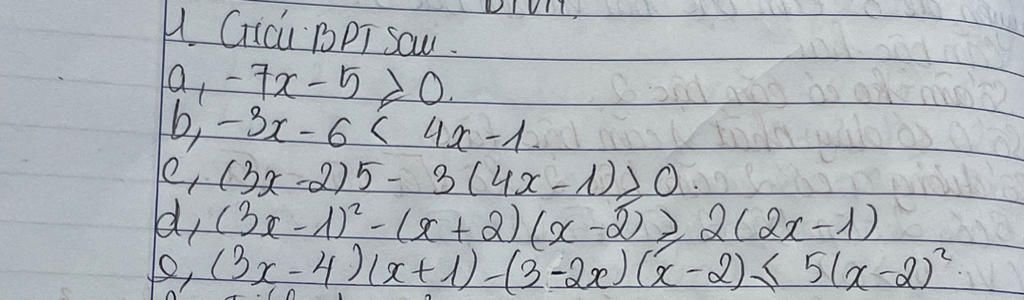 1. Giải BPT sau.
a, -7x - 5 ≥ 0.
b, -3x - 6 < 4x - 1.
c, (3x - 2)5 - 3(4x - 1) ≥ 0.
d, (3x - 1)² - (x + 2)(x - 2) ≥ 2(2x - 1)
e, (3x - 4)(x + 1) - (3 - 2x)(x - 2) ≤ 5(x - 2)².